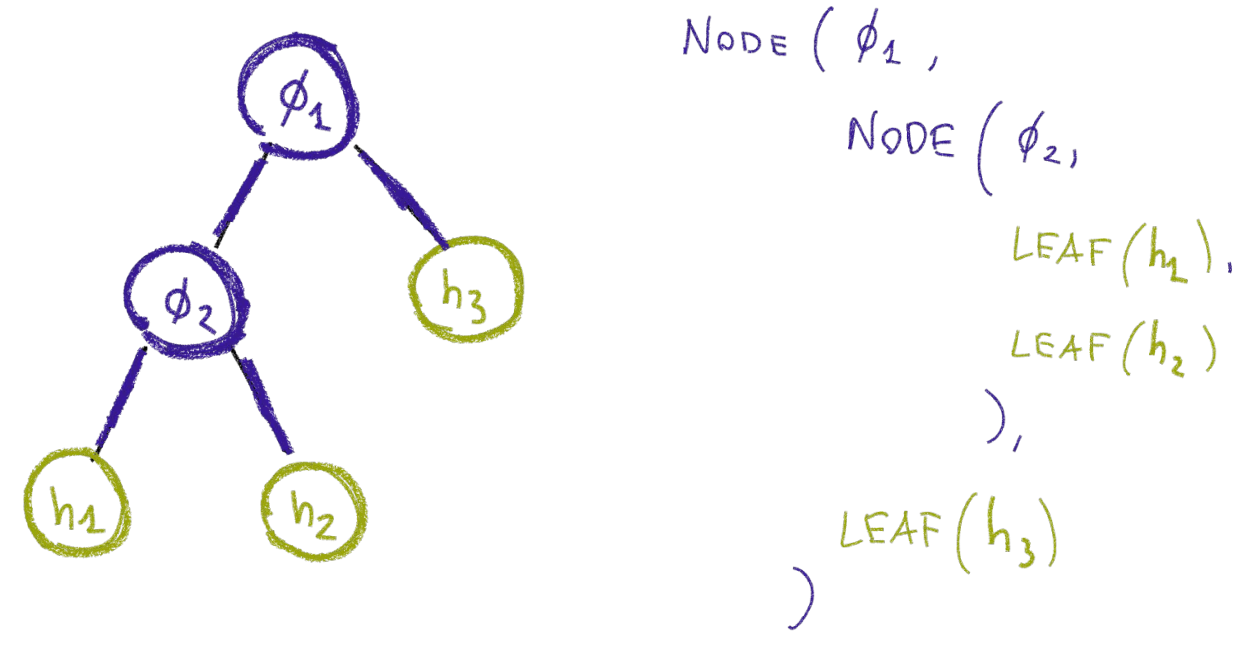 ϕ1
ϕ2
h3
h1
h2
NODE ( ϕ1 ,
NODE ( ϕ2,
LEAF(h1),
LEAF(h2)
),
LEAF(h3)
)